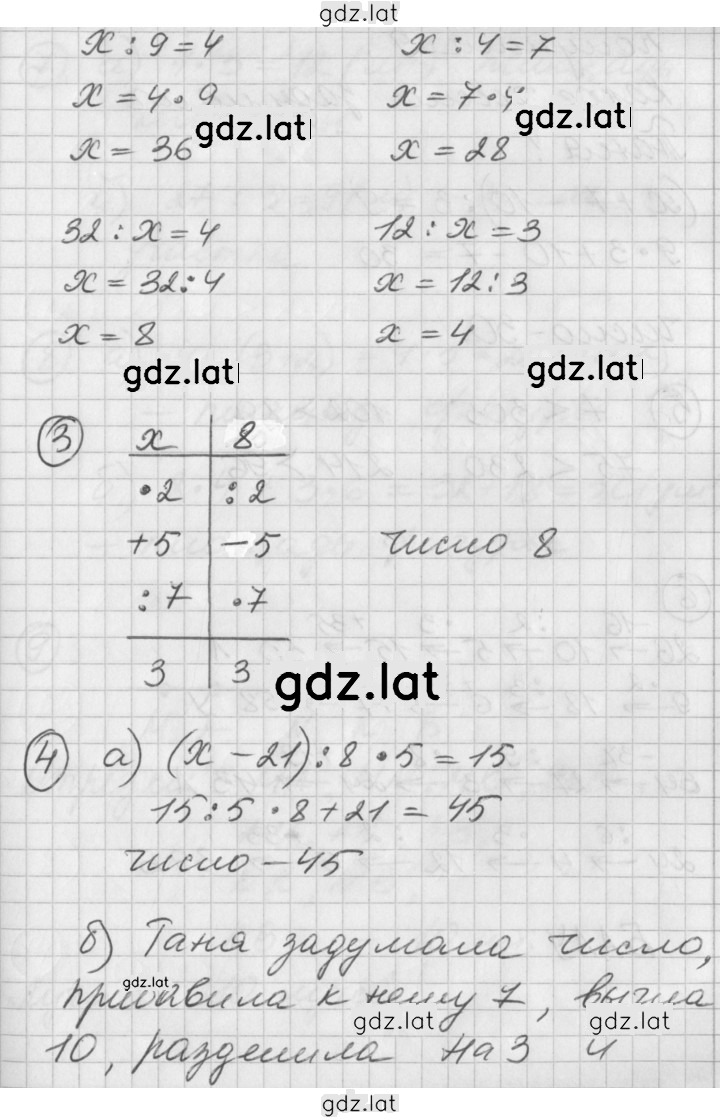 gdz.lat
x : 9 = 4   x : 4 = 7
x = 4 · 9   x = 7 · 4
gdz.lat   gdz.lat
x = 36   x = 28
32 : x = 4   12 : x = 3
x = 32 : 4   x = 12 : 3
x = 8   x = 4
gdz.lat   gdz.lat
3   x | 8
·2 | :2
+5 | −5   число 8
:7 | ·7
3 | 3
gdz.lat
4   а) (x − 21) : 8 · 5 = 15
15 : 5 · 8 + 21 = 45
число − 45
б) Таня задумала число,
gdz.lat
прибавила к нему 7, вычла
gdz.lat   gdz.lat
10, разделила на 3 и
gdz.lat